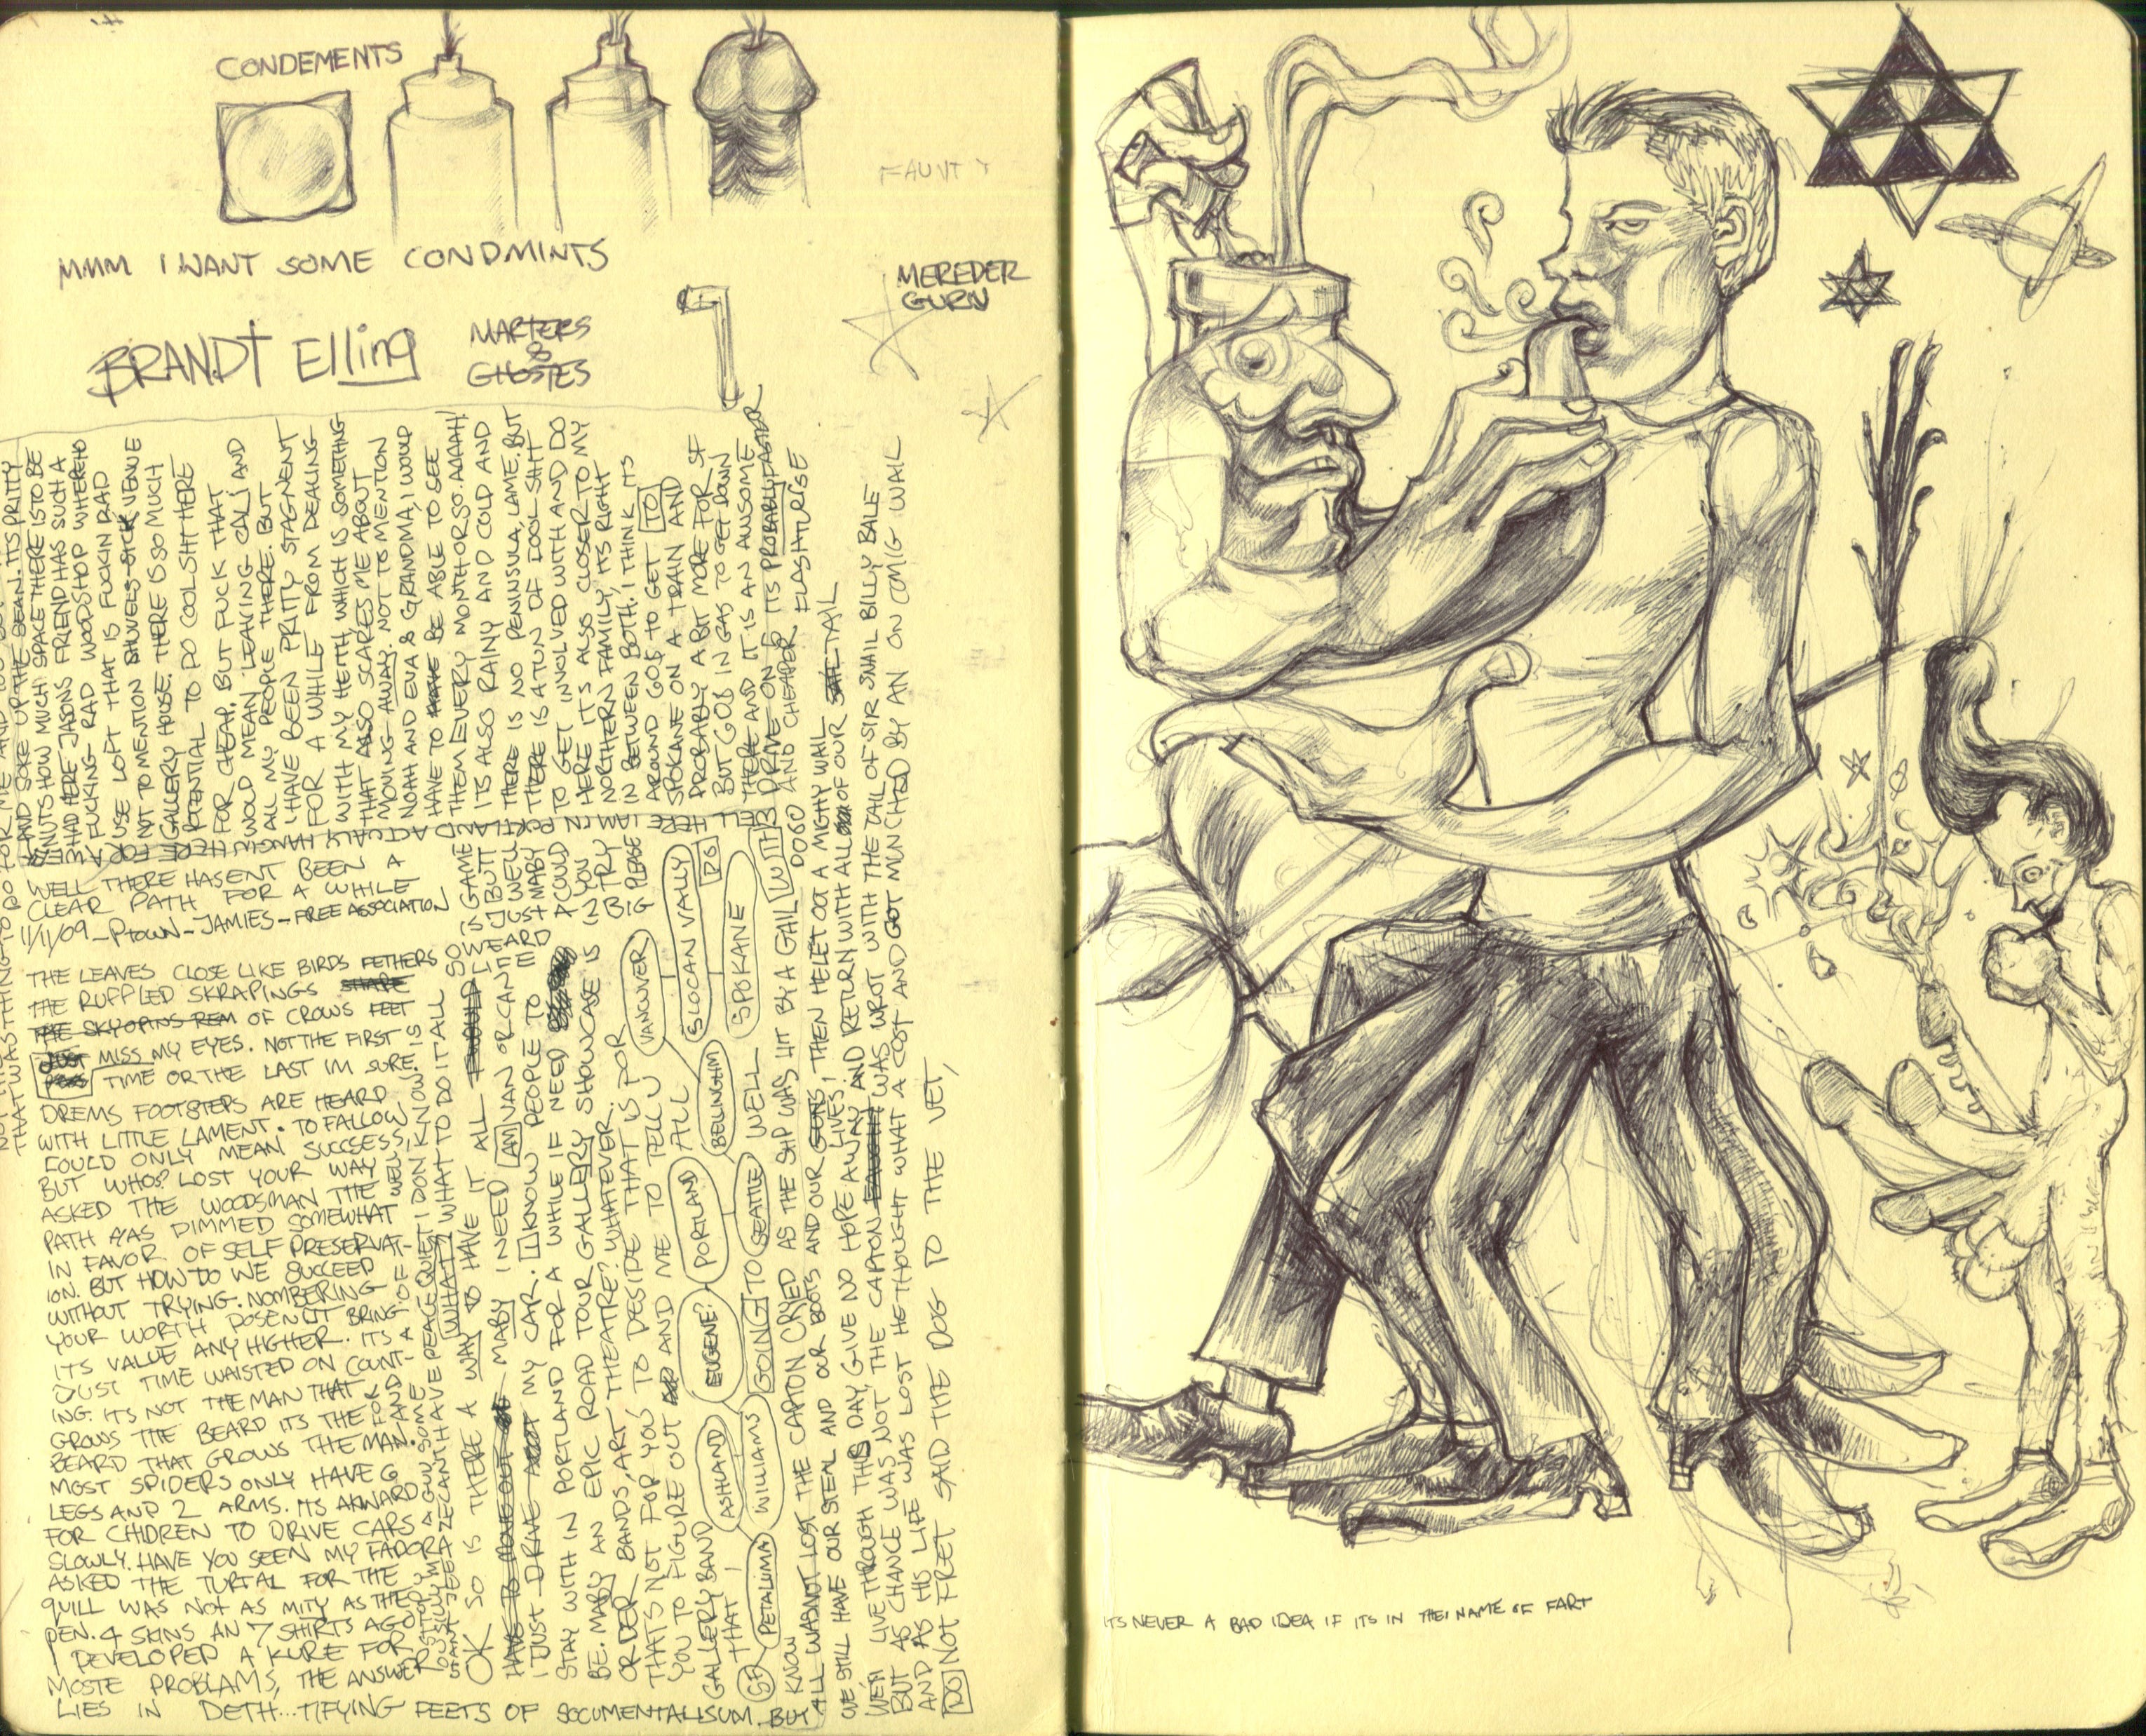 CONDEMENTS
FAUNTY
MMM I WANT SOME CONDMINTS
MEREDER
GURN
BRANDT Elling
MARTERS
&
GHOSTES
THAT WAS THING TO DO FOR ME AND
AND SORE UP THE BEAN. ITS PRITTY
NUTS HOW MUCH SPACE THERE IS TO BE
HAD HERE JASONS FRIEND HAS SUCH A
FUCKING RAD WOODSHOP WHERE HO
USE LOFT THAT IS FUCKIN RAD
NOT TO MENTION SHUVELS SICK VENUE
GALLERY HOUSE. THERE IS SO MUCH
POTENTIAL TO DO COOL SHIT HERE
FOR CHEAP. BUT FUCK THAT
WOULD MEAN LEAVING CALI AND
ALL MY PEOPLE THERE. BUT
I HAVE BEEN PRITTY STAGNENT
FOR A WHILE FROM DEALING
WITH MY HELTH, WHICH IS SOMETHING
THAT ALSO SCARES ME ABOUT
MOVING AWAY. NOT TO MENTION
NOAH AND EVA & GRANDMA, I WOULD
HAVE TO HAVE BE ABLE TO SEE
THEM EVERY MONTH OR SO. AAAAH!
ITS ALSO RAINY AND COLD AND
THERE IS NO PENINSULA, LAME. BUT
THERE IS A TUN OF COOL SHIT
TO GET INVOLVED WITH AND DO
HERE ITS ALSO CLOSER TO MY
NORTHERN FAMILY, ITS RIGHT
IN BETWEEN BOTH. I THINK ITS
AROUND 60$ TO GET TO
SPOKANE ON A TRAIN AND
PROBABLY A BIT MORE FOR SF
BUT 60$ IN GAS TO GET DOWN
THERE AND IT IS AN AUSOME
DRIVE ON 5 ITS PROBABLY FASTER
AND CHEAPER. FLASHTURISE
WELL THERE HASENT BEEN A
CLEAR PATH FOR A WHILE
11/11/09 - PTOWN - JAMIES - FREE ASSOCIATION
THE LEAVES CLOSE LIKE BIRDS FETHERS
THE RUFFLED SKRAPINGS SHAPE
THE SKY OPINS REM OF CROWS FEET
JUST MISS MY EYES. NOT THE FIRST
TIME OR THE LAST IM SURE.
DREMS FOOTSTEPS ARE HEARD
WITH LITTLE LAMENT. TO FALLOW
COULD ONLY MEAN SUCSESS,
BUT WHOS? LOST YOUR WAY
ASKED THE WOODSMAN THE
PATH HAS DIMMED SOMEWHAT
IN FAVOR OF SELF PRESERVAT-
ION. BUT HOW DO WE SUCCEED
WITHOUT TRYING. NOMBERING
YOUR WORTH DOSENUT BRING
ITS VALUE ANY HIGHER. ITS
JUST TIME WAISTED ON COUNT-
ING. ITS NOT THE MAN THAT
GROWS THE BEARD ITS THE
BEARD THAT GROWS THE MAN.
MOST SPIDERS ONLY HAVE 6
LEGS AND 2 ARMS. ITS AKWARD
FOR CHIDREN TO DRIVE CARS
SLOWLY. HAVE YOU SEEN MY FADORA
ASKED THE TURTAL FOR THE
QUILL WAS NOT AS MITY AS THE
PEN. 4 SKINS AN 7 SHIRTS AGO
I DEVELOPED A KURE FOR
MOSTE PROBLAMS, THE ANSWER
LIES IN DETH...TIFYING FEETS OF SOCUMENTALISUM. BUT
OK SO IS THERE A WAY TO HAVE IT ALL
HAVE TO MOVE OUT OF MABY I NEED AN VAN OR CAN I
I JUST DRIVE MY CAR. I KNOW PEOPLE TO
STAY WITH IN PORTLAND FOR A WHILE IF NEED
BE. MABY AN EPIC ROAD TOUR GALLERY SHOWCASE IS
ORDER BANDS, ART THEATRE? WHATEVER.
THATS NOT FOR YOU TO DESIDE THAT IS FOR
YOU TO FIGURE OUT AND ME TO TELL U
GALLERY BAND
THAT
ALL
SF
PETALUMA
WILLIAMS
ASHLAND
EUGENE?
PORTLAND
SEATTLE
BELINGHIM
VANCUVER
SLOCAN VALLY
SPOKANE
GOING TO
WELL
WITH
KNOW
ALL WAS NOT LOST THE CAPTON CRIED AS THE SHIP WAS HIT BY A GAIL
WE STILL HAVE OUR STEAL AND OUR BOOTS AND OUR GUNS, THEN HELET OUT A MIGHY WAIL
WE'll LIVE THROUGH THIS DAY, GIVE NO HOPE AWAY AND RETURN WITH ALL OF OUR TAIL
LIVES,
BUT AS CHANCE WAS NOT THE CAPTON WAS WROT WITH THE TAIL OF SIR SNAIL BILLY BALE
AND AS HIS LIFE WAS LOST HE THOUGHT WHAT A COST AND GOT MUNCHED BY AN ON COMIG WAIL
DO NOT FRET SAID THE DOG TO THE VET,
ITS NEVER A BAD IDEA IF ITS IN THE NAME OF FART